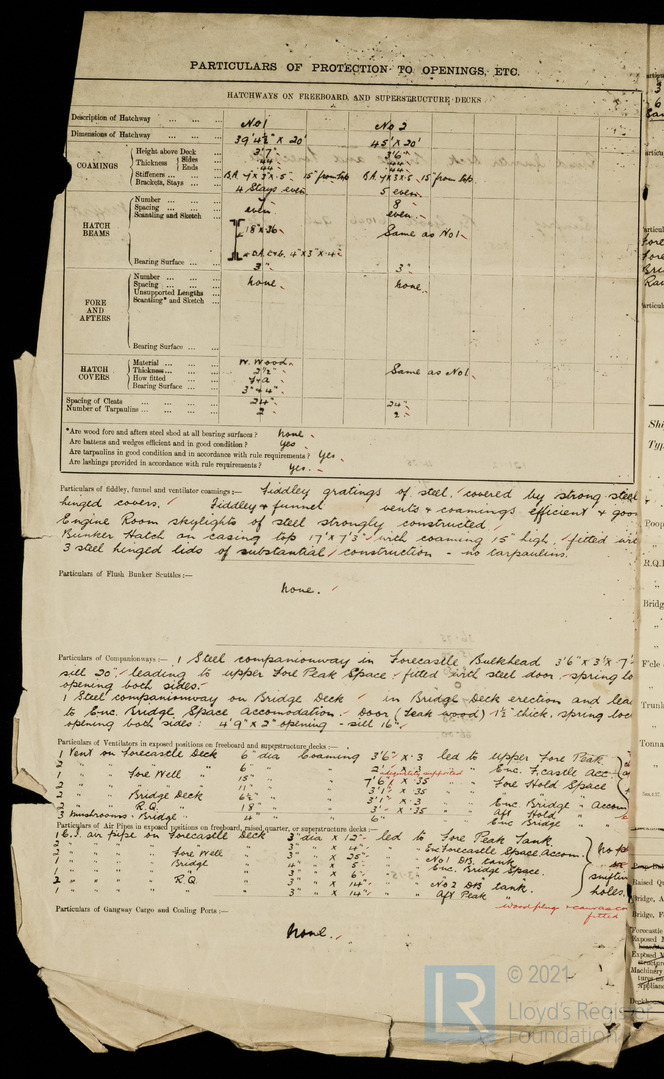 PARTICULARS OF PROTECTION TO OPENINGS, ETC.
HATCHWAYS ON FREEBOARD AND SUPERSTRUCTURE DECKS
Description of Hatchway ... ... ... No 1 No 2
Dimensions of Hatchway ... ... 39' 4½" x 20' 45' x 20'
COAMINGS
Height above Deck ... 3'7" 3'6"
Thickness { Sides .44 .44
Ends .44 .44
Stiffeners ... ... B.A. 7 x 3 x .5 15" from top B.A. 7 x 3 x .5 15" from top
Brackets, Stays ... ... 4 Stays even 5 even
HATCH BEAMS
Number ... ... ... 8
Spacing ... ... ... even even
Scantling and Sketch
18" x .36 Same as No 1
4" x 3" x .42
Bearing Surface ... ... 3" 3"
FORE AND AFTERS
Number ... ... ... none none
Spacing ... ... ...
Unsupported Lengths ...
Scantling* and Sketch
Bearing Surface ... ...
HATCH COVERS
Material ... ... ... W. Wood
Thickness ... ... 2½" Same as No 1
How fitted ... ... F & A
Bearing Surface ... ... 3" & 4"
Spacing of Cleats ... ... ... 24" 24"
Number of Tarpaulins ... ... ... 2 2
*Are wood fore and afters steel shod at all bearing surfaces? none
Are battens and wedges efficient and in good condition? yes
Are tarpaulins in good condition and in accordance with rule requirements? yes
Are lashings provided in accordance with rule requirements? yes
Particulars of fiddley, funnel and ventilator coamings:— Fiddley gratings of steel, covered by strong steel
hinged covers. Fiddley & funnel vents & coamings efficient & good
Engine Room skylights of steel strongly constructed
Bunker Hatch on casing top 17' x 7'3" with coaming 15" high, fitted with
3 steel hinged lids of substantial construction - no tarpaulins.
Particulars of Flush Bunker Scuttles:—
None.
Particulars of Companionways:— 1 Steel companionway in Forecastle Bulkhead 3'6" x 3' x 7'
sill 20", leading to upper Fore Peak Space, fitted with steel door, spring lo
opening both sides.
1 Steel companionway on Bridge Deck in Bridge Deck erection and lea
to Enc. Bridge Space Accomodation. Door (Teak wood) 1½" thick, spring loc
opening both sides: 4'9" x 2" opening - sill 16"
Particulars of Ventilators in exposed positions on freeboard and superstructure decks:—
1 Vent on Forecastle Deck 6" dia Coaming 3'6" x .3 led to upper Fore Peak
2 " " " " 6" " x .3 " " Enc. F.castle Acc.
adequately supported
1 " " Fore Well 15" " 7'6" x .35 " " Fore Hold Space
2 " " " 11" " 3'1" x .35 " "
2 " " Bridge Deck 6½" " 3'1" x .3 " " Enc. Bridge " Accom
2 " " R.Q. 18" " 3' x .35 " " Aft Hold "
3 mushrooms - Bridge " 4" " 6" " " Enc Bridge
Particulars of Air Pipes in exposed positions on freeboard, raised quarter, or superstructure decks:—
air pipe on Forecastle Deck 3" dia x 12" led to Fore Peak Tank.
2 " " " " " 3" " x 4" " Enc Forecastle Space Accom.
2 " " " Fore Well 3" " x 25" " No 1 DB. tank
1 " " " Bridge 4" " x 5" " Enc. Bridge Space.
1 " " " " 3" " x 6" "
2 " " " R.Q. 3" " x 14" " No 2 DB tank.
1 " " " " 3" " x 14" " Aft Peak "
holes.
wood plug & canvas co
fitted
Particulars of Gangway Cargo and Coaling Ports:—
None.
© 2021
Lloyd's Register
Foundation
LR
R.Q.
Bridg
F'cle
Trunk
Tonna
Raised Qu
Bridge, A
Bridge, F
Forecastle
Exposed M
Machinery